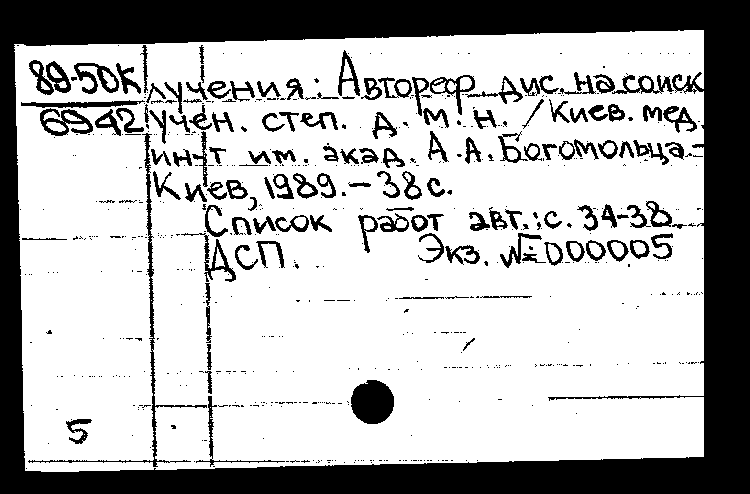 89-50К
6942
лучения: Автореф дис. на соиск
учен. степ. д. м. н. / Киев. мед.
ин-т им. акад. А. А. Богомольца.-
Киев, 1989.- 38 с.
Список работ авт.: с. 34-38.
ДСП. Экз. № 000005
5